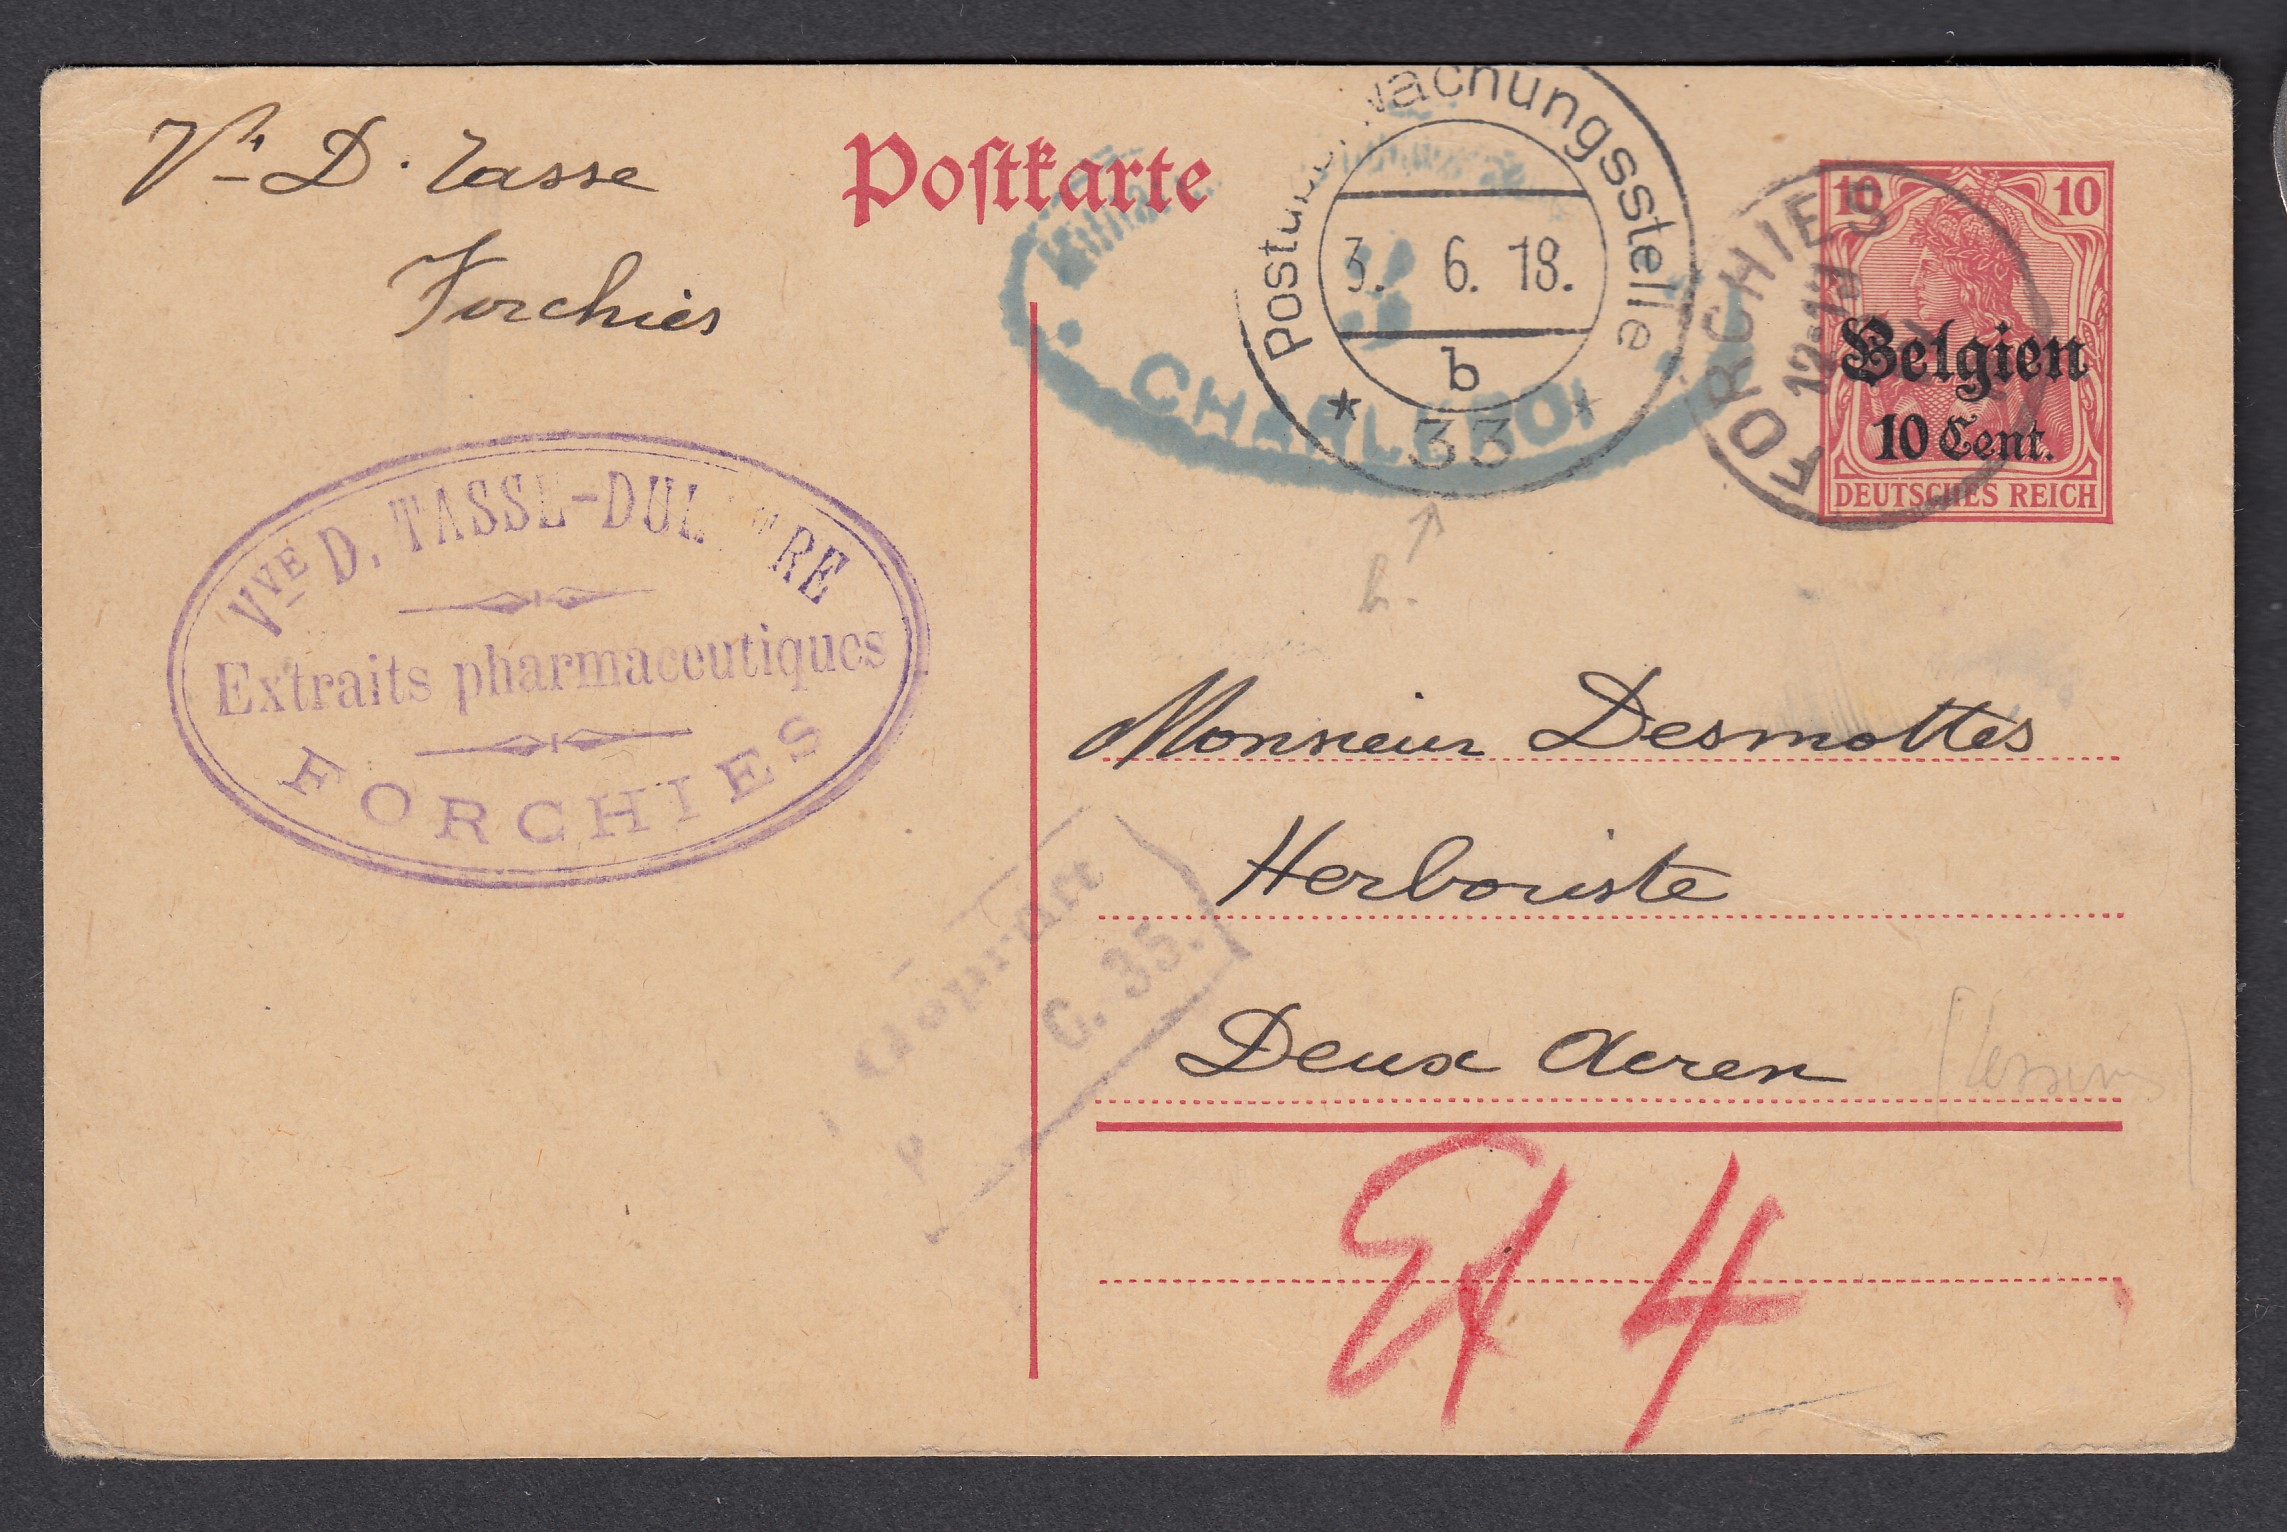 Vve D. Tasse
Forchies
Postkarte
Postüberwachungsstelle
3. 6. 18.
b
33
CHARLEROI
FORCHIES
12-1N
10 10
Belgien
10 Cent.
DEUTSCHES REICH
h.
Vve D. TASSE-DUL RE
Extraits pharmaceutiques
FORCHIES
Monsieur Desmottes
Herboriste
Deux Acren
(Lessines)
Geprüft
C. 35.
4